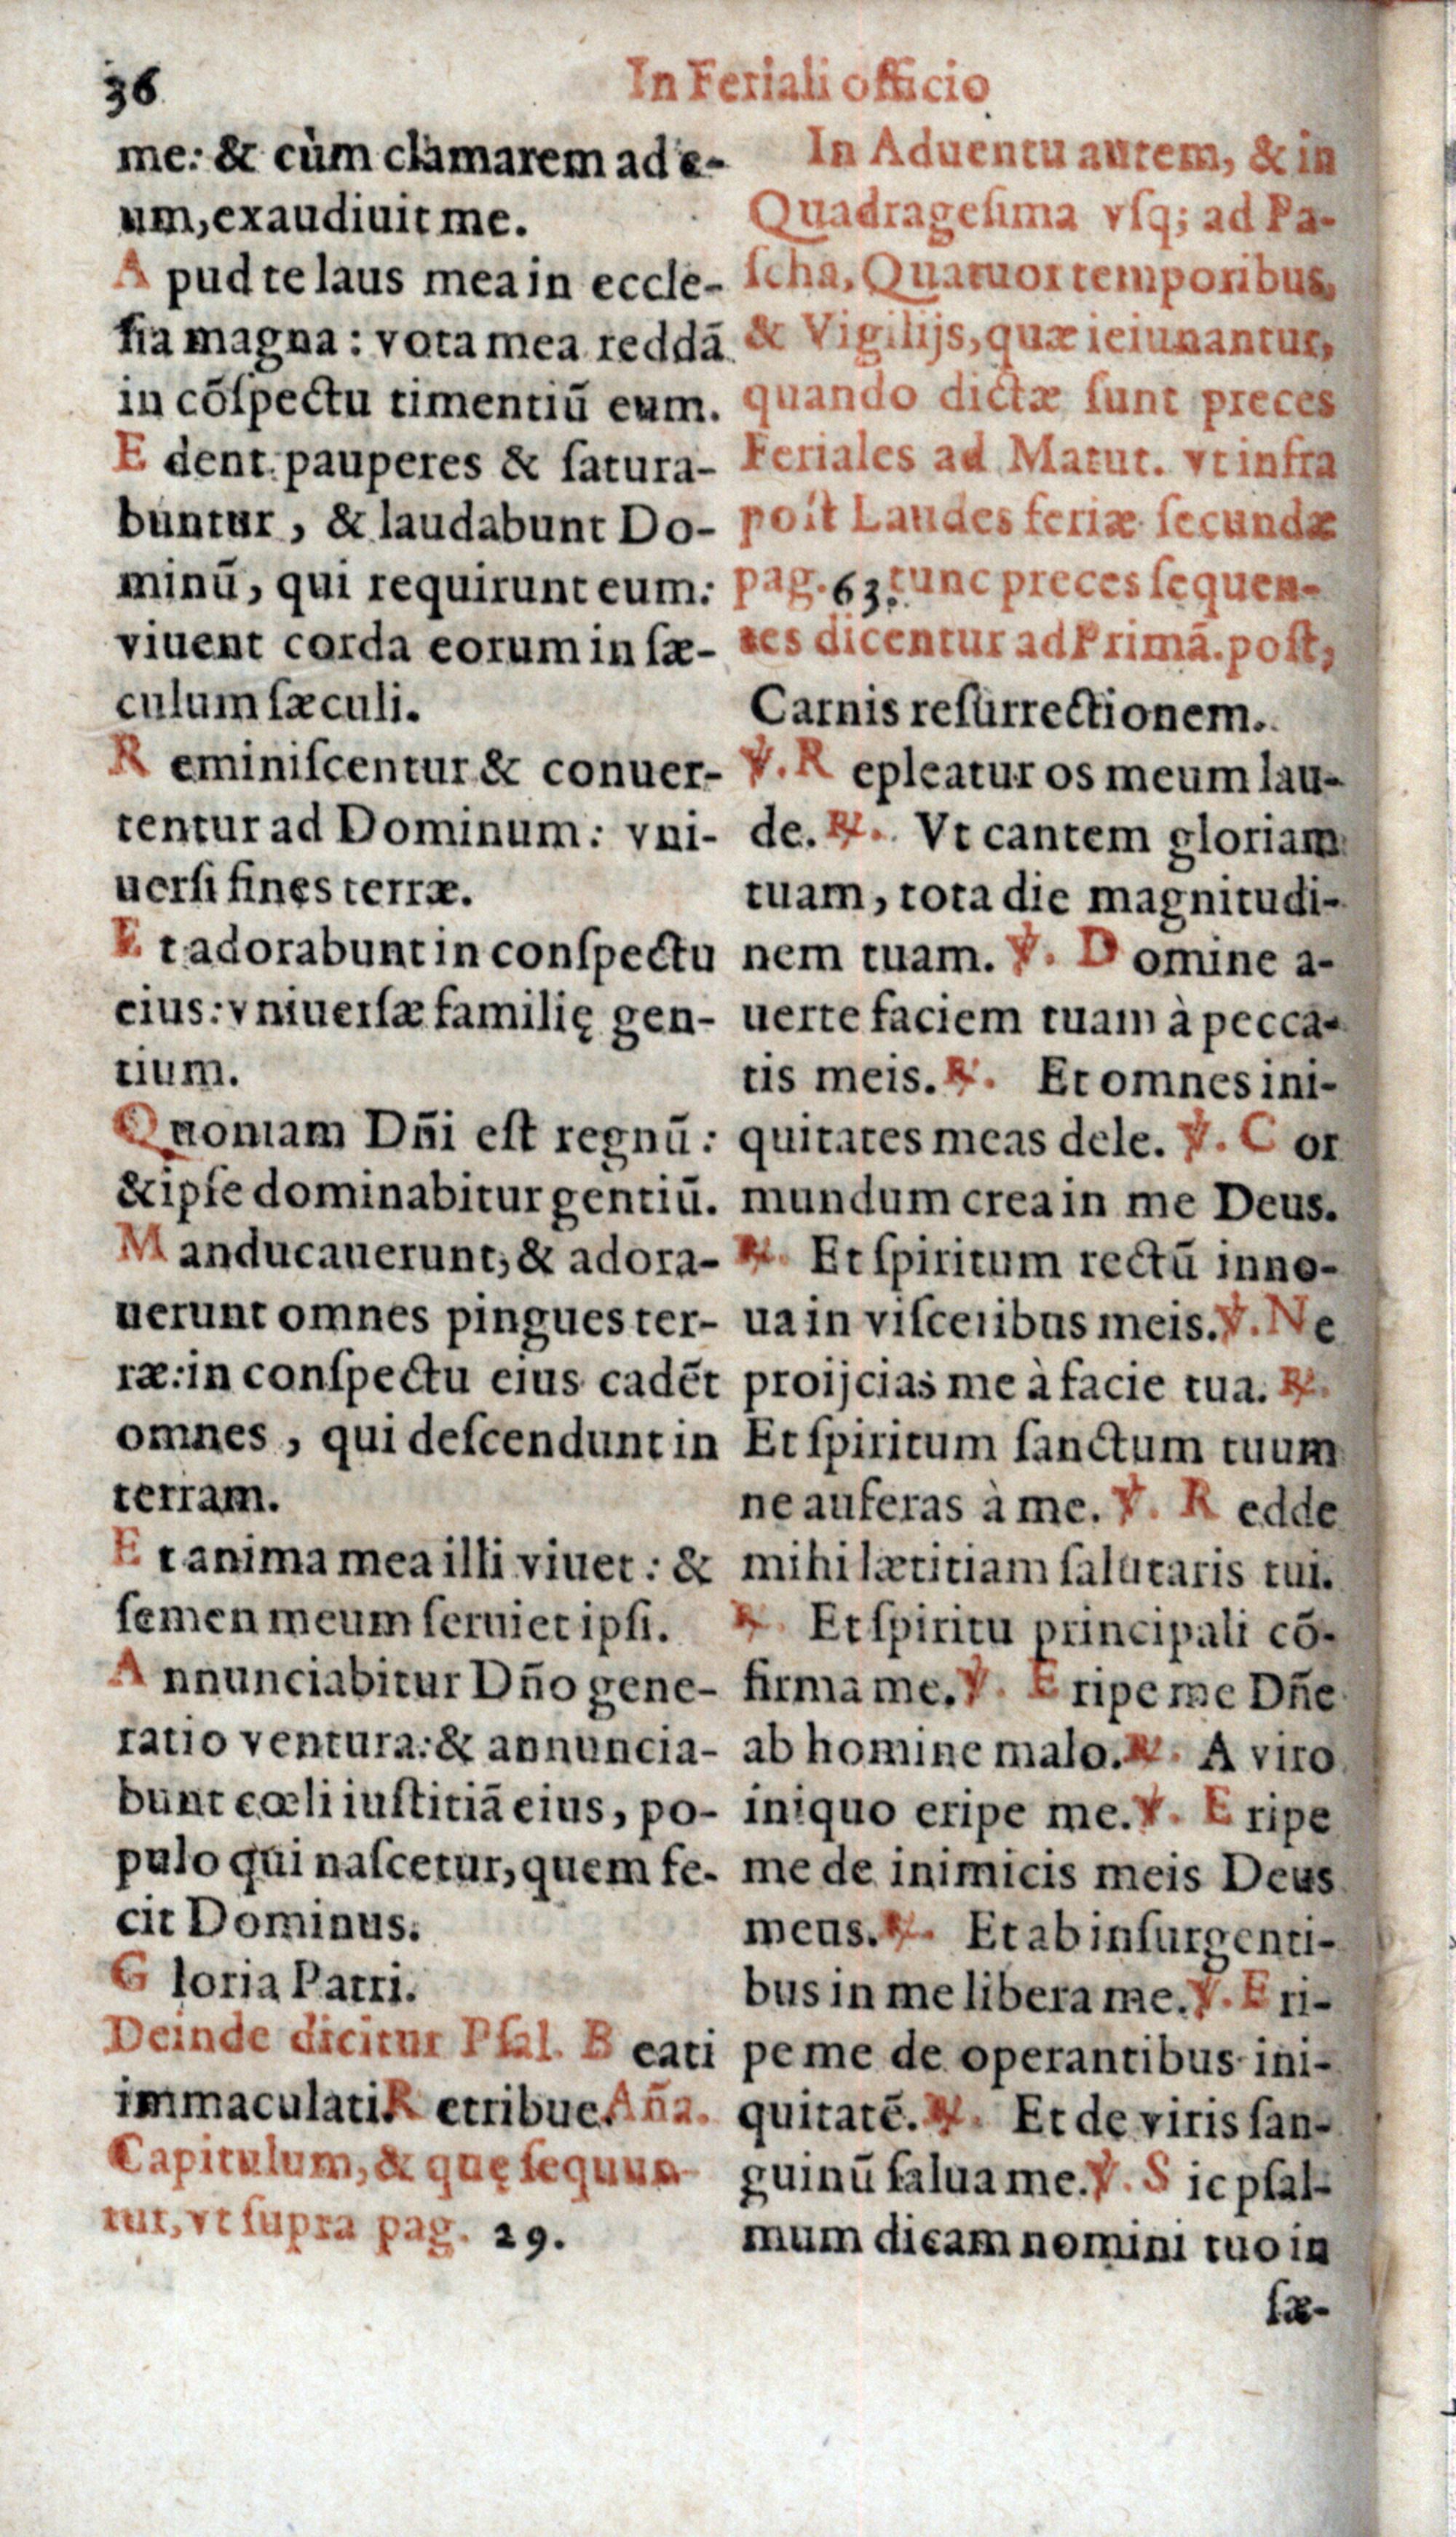 36
In Feriali officio
me: & cùm clamarem ad e-
um, exaudiuit me.
A pud te laus mea in eccle-
ſia magna: vota mea reddā
in cōſpectu timentiū eum.
E dent pauperes & ſatura-
buntur, & laudabunt Do-
minū, qui requirunt eum:
viuent corda eorum in ſæ-
culum ſæculi.
R eminiſcentur & conuer-
tentur ad Dominum: vni-
uerſi fines terræ.
E t adorabunt in conſpectu
eius: vniuerſæ familię gen-
tium.
Quoniam Dñi eſt regnū:
& ipſe dominabitur gentiū.
M anducauerunt, & adora-
uerunt omnes pingues ter-
ræ: in conſpectu eius cadēt
omnes, qui deſcendunt in
terram.
E t anima mea illi viuet: &
ſemen meum ſeruiet ipſi.
A nnunciabitur Dño gene-
ratio ventura: & annuncia-
bunt cœli iuſtitiā eius, po-
pulo qui naſcetur, quem fe-
cit Dominus.
G loria Patri.
Deinde dicitur Pſal. B eati
immaculati. R etribue. Aña.
Capitulum, & quę ſequun-
tur, vt ſupra pag. 29.
In Aduentu autem, & in
Quadrageſima vſq; ad Pa-
ſcha, Quatuor temporibus,
& Vigilijs, quæ ieiunantur,
quando dictæ ſunt preces
Feriales ad Matut. vt infra
poſt Laudes feriæ ſecundæ
pag. 63. tunc preces ſequen-
tes dicentur ad Primā. poſt,
Carnis reſurrectionem.
℣. R epleatur os meum lau-
de. ℟. Vt cantem gloriam
tuam, tota die magnitudi-
nem tuam. ℣. D omine a-
uerte faciem tuam à pecca-
tis meis. ℟. Et omnes ini-
quitates meas dele. ℣. C or
mundum crea in me Deus.
℟. Et ſpiritum rectū inno-
ua in viſceribus meis. ℣. Ne
proijcias me à facie tua. ℟.
Et ſpiritum ſanctum tuum
ne auferas à me. ℣. R edde
mihi lætitiam ſalutaris tui.
℟. Et ſpiritu principali cō-
firma me. ℣. E ripe me Dñe
ab homine malo. ℟. A viro
iniquo eripe me. ℣. E ripe
me de inimicis meis Deus
meus. ℟. Et ab inſurgenti-
bus in me libera me. ℣. E ri-
pe me de operantibus ini-
quitatē. ℟. Et de viris ſan-
guinū ſalua me. ℣. S ic pſal-
mum dicam nomini tuo in
ſæ-